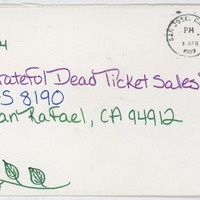 SAN JOSE, C
PM
APR
rateful Dead Ticket Sales
S 8190
an Rafael, CA 94912